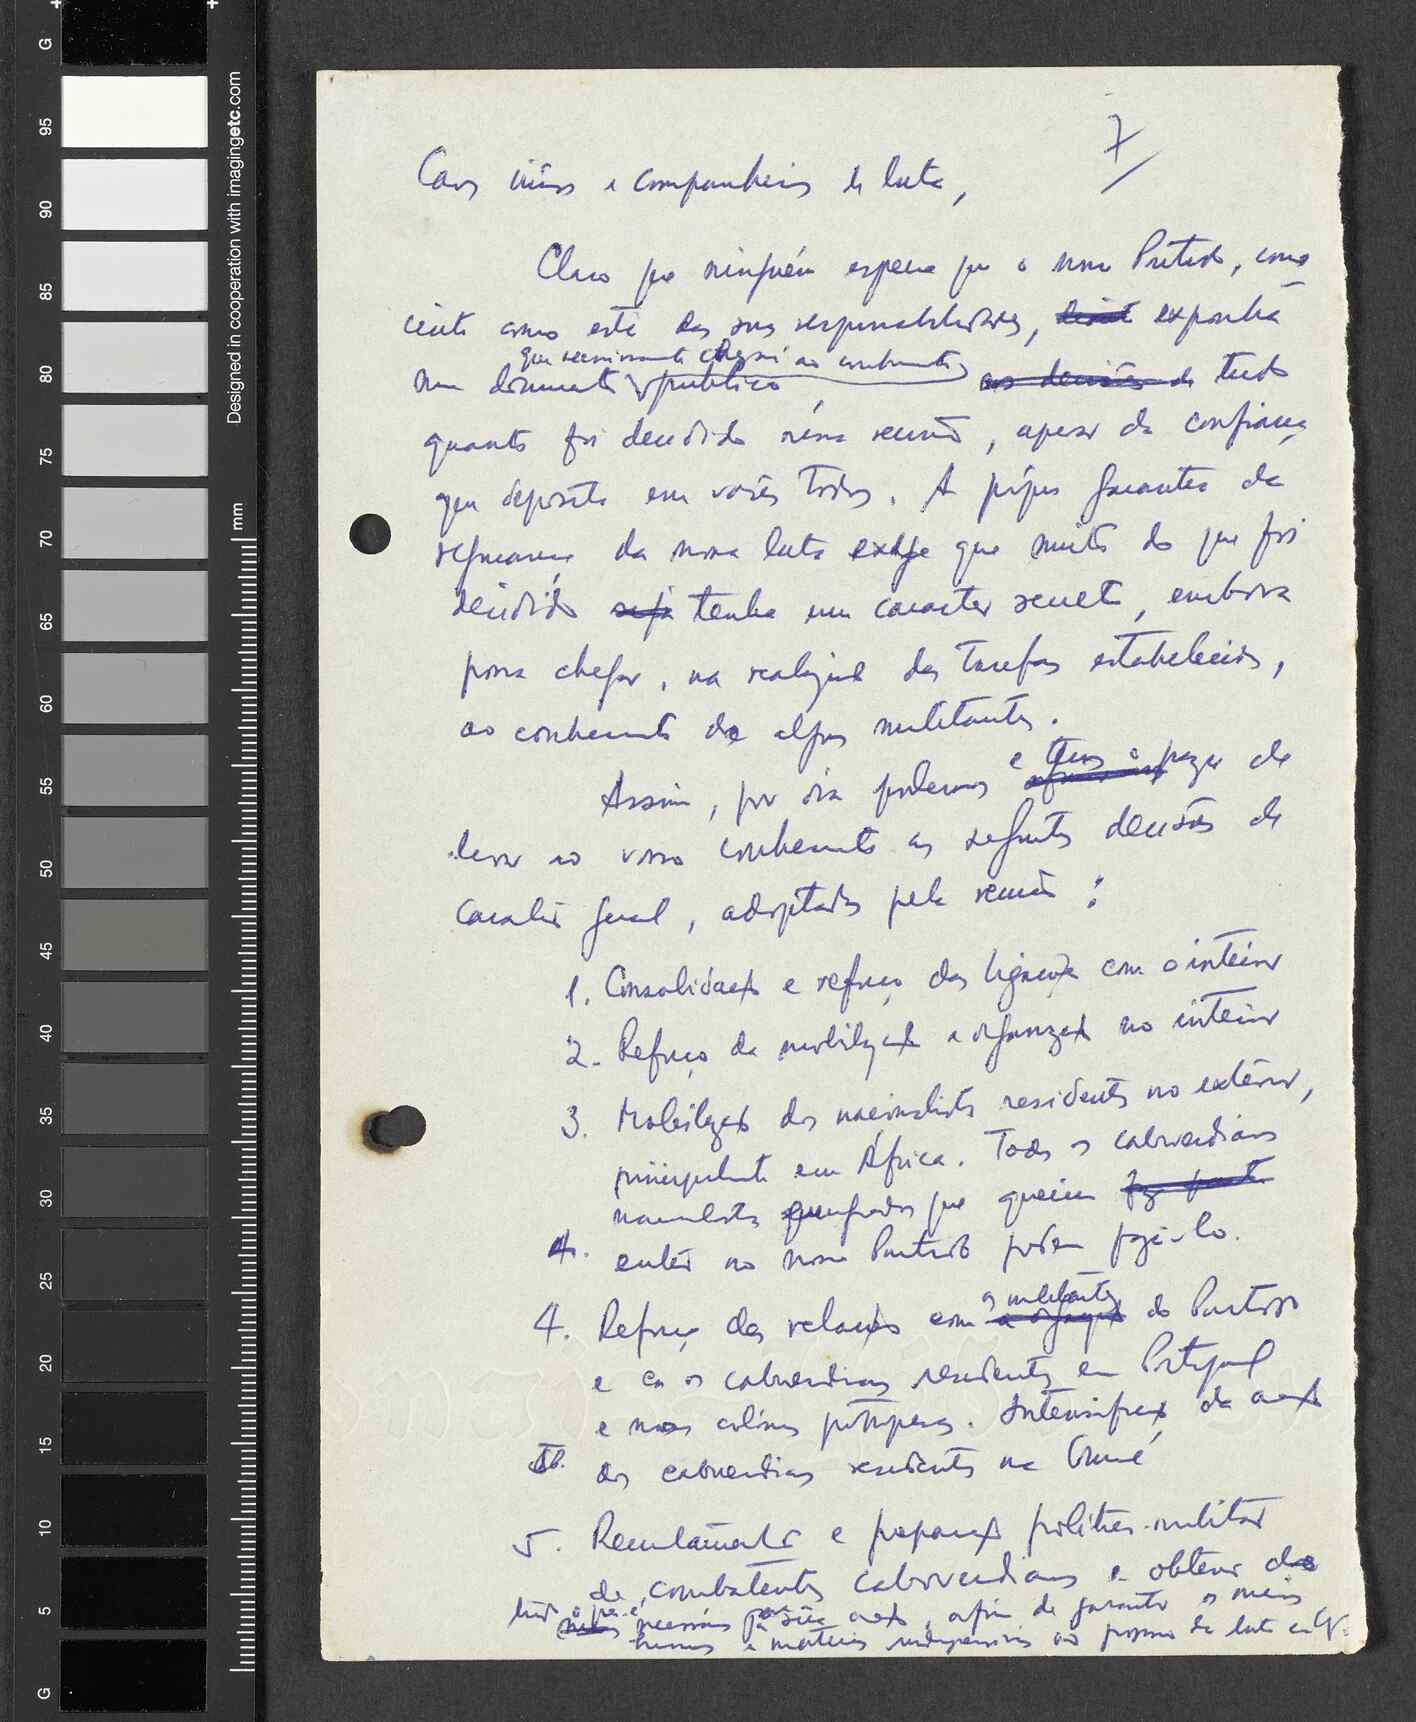 7
Caros irmãos e companheiros de luta,
Claro que ninguém espera que o nosso Partido, cons
ciente como está das suas responsabilidades, exponha
que recentemente chegará ao conhecimento
num documento público, as decisões de tudo
quanto foi decidido nessa reunião, apesar da confiança
que deposita em vocês todos. A própria garantia da
segurança da nossa luta exige que muito do que foi
decidido seja tenha um caracter secreto, embora
possa chegar, na realização das tarefas estabelecidas,
ao conhecimento de alguns militantes.
Assim, por ora podemos e temos o prazer de
levar ao vosso conhecimento as seguintes decisões de
carácter geral, adoptadas pela reunião:
1. Consolidação e reforço das ligações com o interior
2. Reforço da mobilização e organização no interior
3. Mobilização dos nacionalistas residentes no exterior,
principalmente em África. Todos os caboverdianos
nacionalistas que queiram faz parte
4. entrar no nosso Partido podem fazê-lo.
os militantes
4. Reforço das relações com do Partido
e com os caboverdianos residentes em Portugal
e nas colónias portuguesas. Intensificação da acção
dos caboverdianos residentes na Guiné
5. Recrutamento e preparação político-militar
de combatentes caboverdianos e obter de
tudo o que é necessário para essa acção, afim de garantir os meios
humanos e materiais indispensáveis ao progresso da luta em